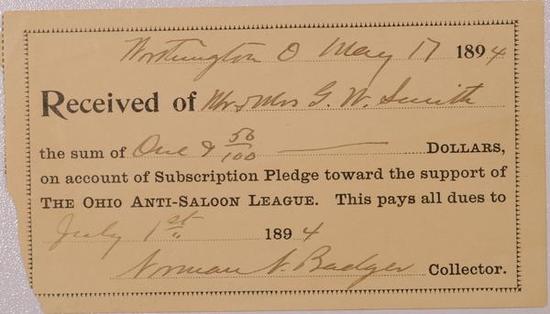 Worthington O May 17 1894
Received of Mr & Mrs G. W. Smith
the sum of One & 50/100 DOLLARS,
on account of Subscription Pledge toward the support of
THE OHIO ANTI-SALOON LEAGUE. This pays all dues to
July 1st 1894
Norman N. Badger Collector.